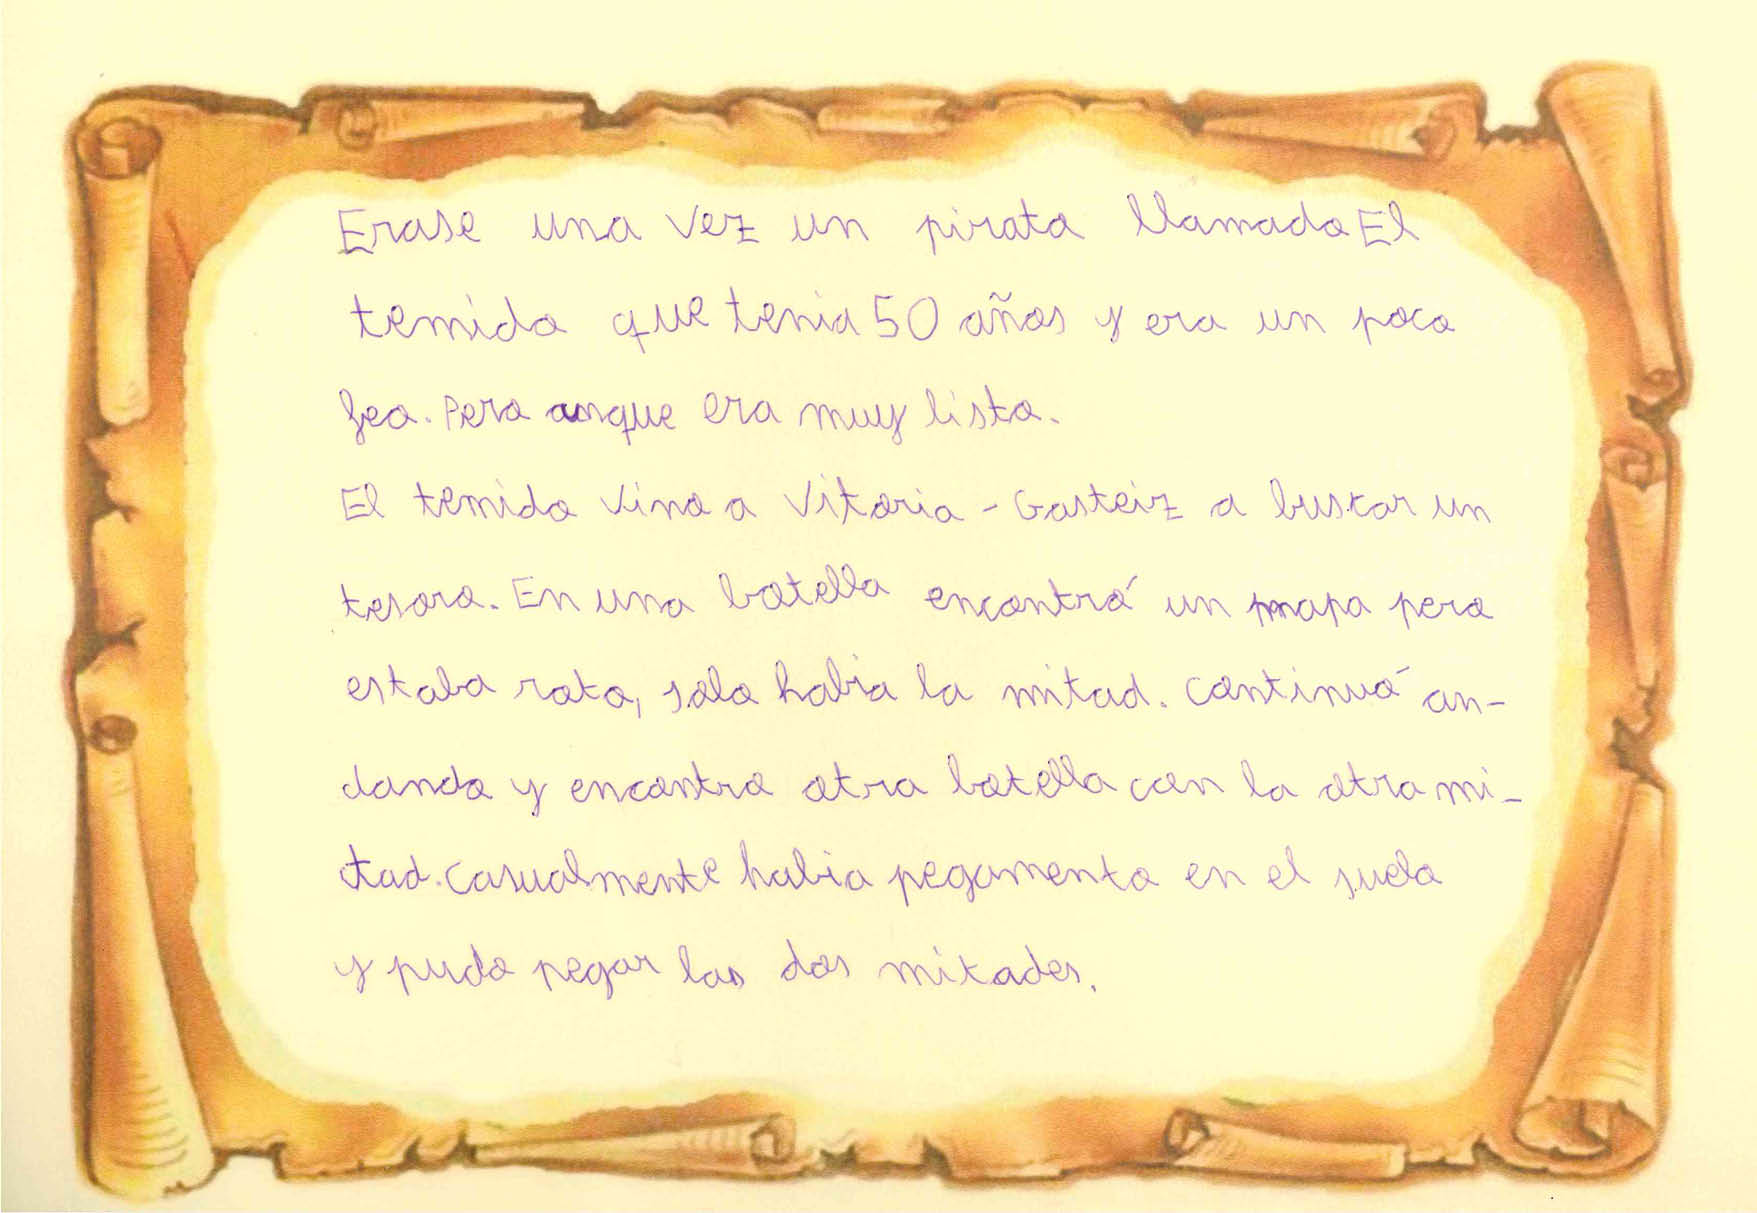 Erase una vez un pirata llamado El
temido que tenia 50 años y era un poco
feo. Pero anque era muy listo.
El temido vino a Vitoria - Gasteiz a buscar un
tesoro. En una botella encontró un mapa pero
estaba roto, solo habia la mitad. Continuó an-
dando y encontro otra botella con la otra mi-
tad. Casualmente habia pegamento en el suelo
y pudo pegar las dos mitades.